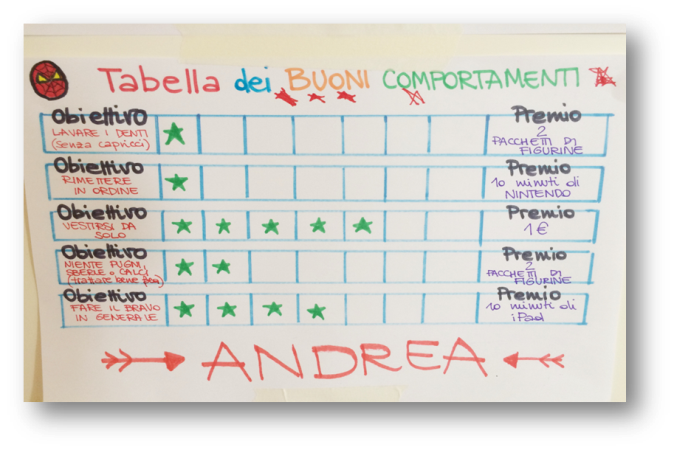 Tabella dei BUONI COMPORTAMENTI
Obiettivo
LAVARE I DENTI
(senza capricci)
Premio
2
PACCHETTI DI
FIGURINE
Obiettivo
RIMETTERE
IN ORDINE
Premio
10 minuti di
NINTENDO
Obiettivo
VESTIRSI DA
SOLO
Premio
1€
Obiettivo
NIENTE PUGNI,
SBERLE o CALCI
(trattare bene
Premio
2
PACCHETTI DI
FIGURINE
Obiettivo
FARE IL BRAVO
IN GENERALE
Premio
10 minuti di
iPad
ANDREA